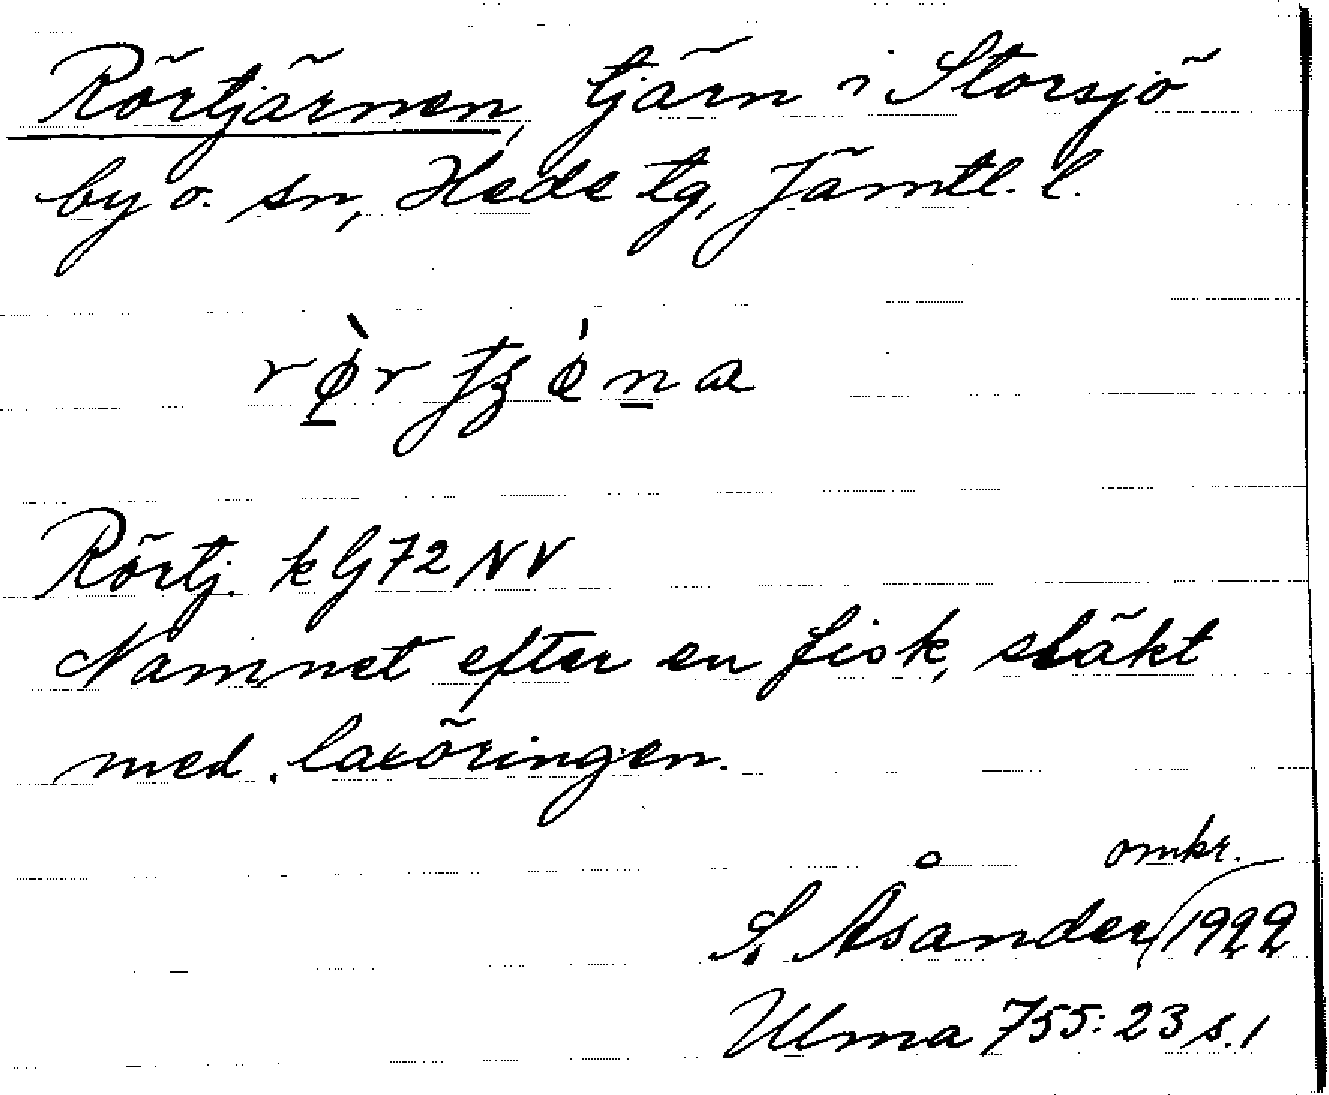 Rörtjärnen, tjärn i Storsjö
by o. sn, Hede tg, Jämtl. l.
Rörtj. k G72 NV
Namnet efter en fisk, släkt
med laxöringen.
omkr.
S. Åsander 1922
Ulma 755:23 s. 1